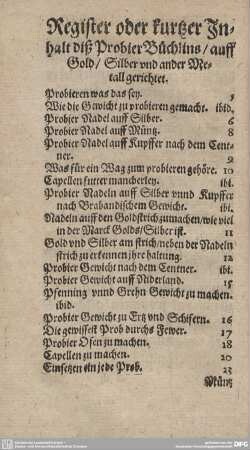 Register oder kurtzer In-
halt diß Probier Büchlins / auff
Gold / Silber vnd ander Me-
tall gerichtet.
Probieren was das sey. 5
Wie die Gewicht zu probieren gemacht. ibid.
Probier Nadel auff Silber. 6
Probier Nadel auff Müntz. 8
Probier Nadel auff Kupffer nach dem Cent-
ner. 9
Was für ein Wag zum probieren gehöre. 10
Capellen futter mancherley. ibi.
Probier Nadeln auff Silber vnnd Kupffer
nach Brabandischem Gewicht. ibi.
Nadeln auff den Goldstrich zumachen / wie viel
in der Marck Golds / Silber ist. 11
Gold vnd Silber am strich / neben der Nadeln
strich zu erkennen jhre haltung. 12
Probier Gewicht nach dem Centener. ibi.
Probier Gewicht auff Niderland. 15
Pfenning vnnd Grehn Gewicht zu machen.
ibid.
Probier Gewicht zu Ertz vnd Schifern. 16
Die gewissest Prob durchs Fewer. 17
Probier Ofen zu machen. 18
Capellen zu machen. 20
Einsetzen ein jede Prob. 23
Müntz